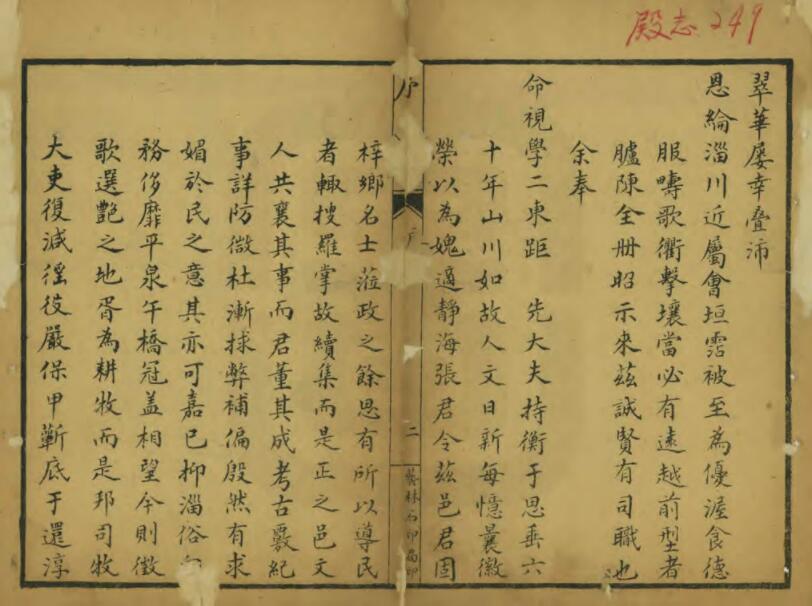 殿志249
翠華屡幸叠沛
恩綸淄川近屬會垣霑被至為優渥食德
服疇歌衢擊壤當必有遠越前型者
臚陳全册昭示來茲誠賢有司職也
余奉
命視學二東距 先大夫持衡于思垂六
十年山川如故人文日新每憶曩徽
榮以為媿適靜海張君令茲邑君固
序
二
藝林石印局印
梓鄉名士蒞政之餘思有所以導民
者輙搜羅掌故續集而是正之邑文
人共襄其事而君董其成考古覈紀
事詳防微杜漸捄弊補偏殷然有求
媚於民之意其亦可嘉已抑淄俗
務侈靡平泉午橋冠盖相望今則徵
歌選艷之地胥為耕牧而是邦司牧
大吏復減徭役嚴保甲蘄底于還淳